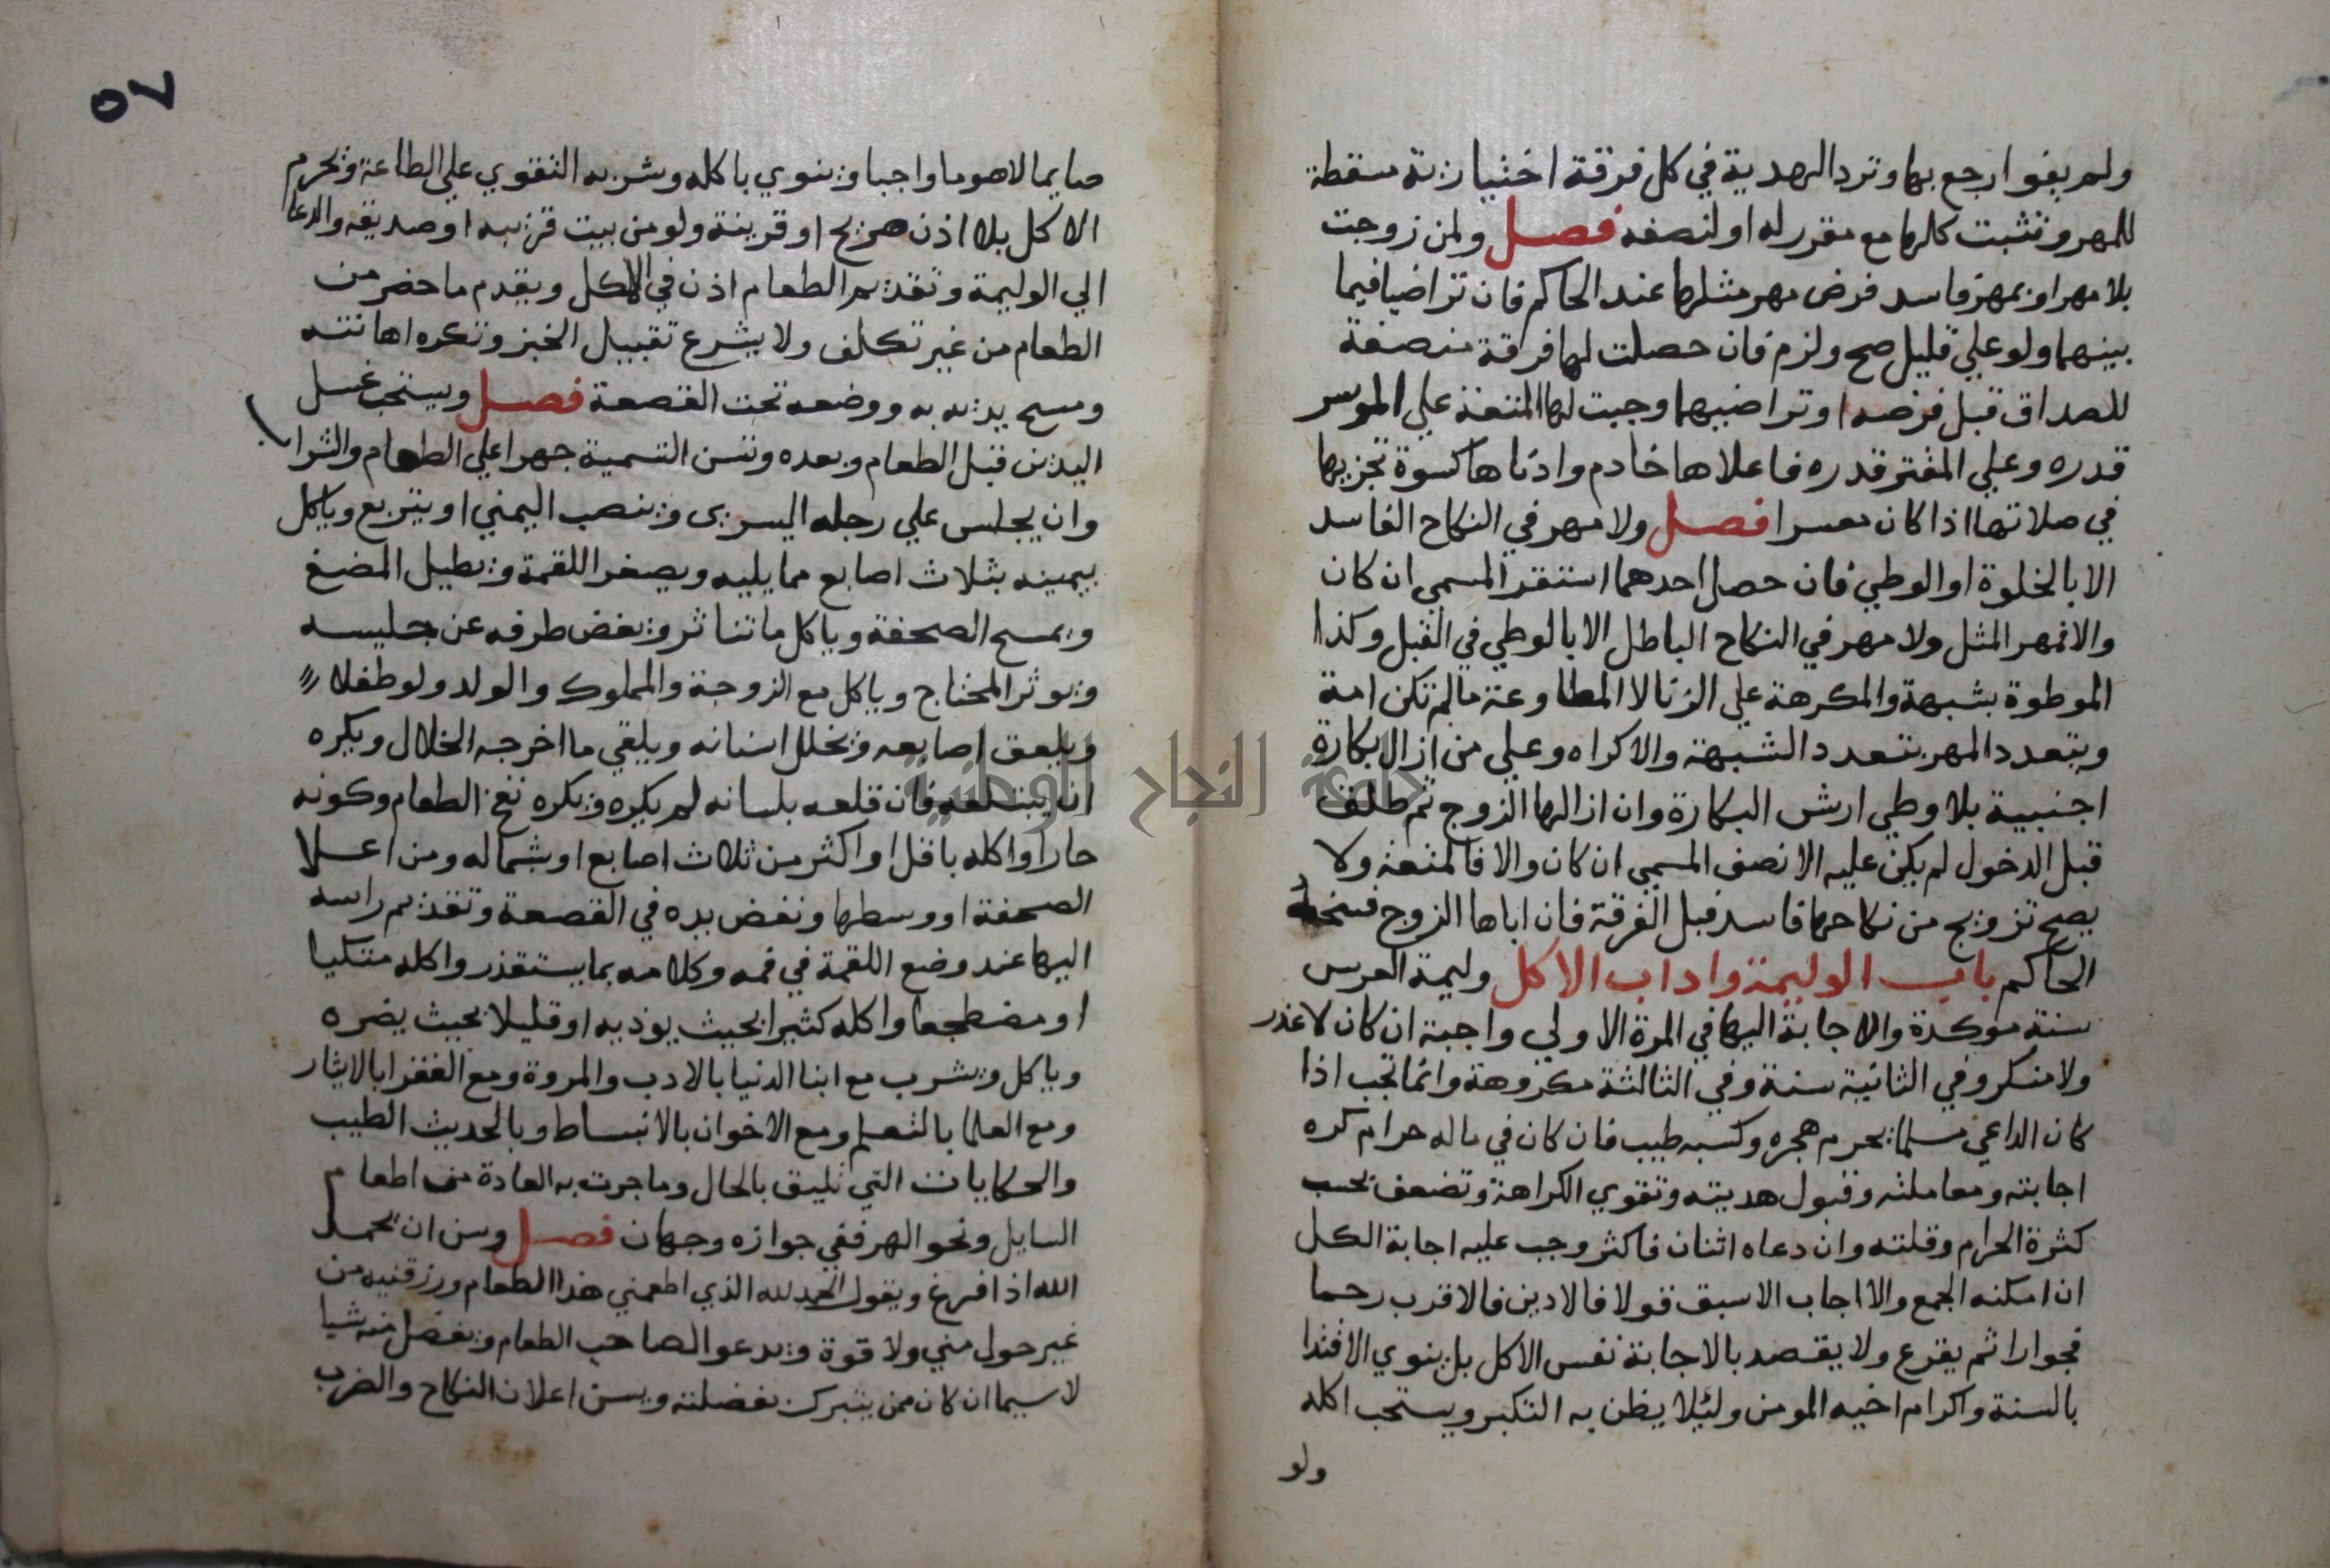 ولم يفوا رجع بها وترد الهدية في كل فرقة اختيارية مسقطة
للمهر وتثبت كلها مع مقرر له او لنصفه فصل ولمن زوجت
بلا مهر او بمهر فاسد فرض مهر مثلها عند الحاكم فان تراضيا فيما
بينهما ولو علي قليل صح ولزم فان حصلت لها فرقة منصفة
للصداق قبل فرضه او تراضيهما وجبت لها المتعة علي الموسر
قدره وعلي المقتر قدره فاعلاها خادم وادناها كسوة تجزيها
في صلاتها اذا كان معسرا فصل ولا مهر في النكاح الفاسد
الا بالخلوة او الوطي فان حصل احدهما استقر المسمي ان كان
والا فمهر المثل ولا مهر في النكاح الباطل الا بالوطي في القبل وكذا
الموطوة بشبهة والمكرهة علي الزنا لا المطاوعة مالم تكن امة
ويتعدد المهر بتعدد الشبهة والاكراه وعلي من ازال بكارة
اجنبية بلا وطي ارش البكارة وان ازالها الزوج ثم طلق
قبل الدخول لم يكن عليه الا نصف المسمي ان كان والا فالمتعة ولا
يصح تزويج من نكاحها فاسد قبل الفرقة فان اباها الزوج فسخه
الحاكم باب الوليمة واداب الاكل وليمة العرس
سنة موكدة والاجابة اليها في المرة الاولي واجبة ان كان لا عذر
ولا منكر وفي الثانية سنة وفي الثالثة مكروهة وانما تجب اذا
كان الداعي مسلما يحرم هجره وكسبه طيب فان كان في ماله حرام كره
اجابته ومعاملته وقبول هديته وتقوي الكراهة وتضعف بحسب
كثرة الحرام وقلته وان دعاه اثنان فاكثر وجب عليه اجابة الكل
ان امكنه الجمع والا اجاب الاسبق قولا فالادين فالاقرب رحما
فجوارا ثم يقرع ولا يقصد بالاجابة نفس الاكل بل ينوي الاقتدا
بالسنة واكرام اخيه المومن ولئلا يظن به التكبر ويستحب اكله
ولو
٥٧
صايما لا صوما واجبا وينوي باكله وشربه التقوي علي الطاعة ويحرم
الاكل بلا اذن صريح او قرينة ولو من بيت قريبه او صديقه والدعا
الي الوليمة وتقديم الطعام اذن في الاكل ويقدم ما حضر من
الطعام من غير تكلف ولا يشرع تقبيل الخبز وتكره اهانته
ومسح يديه به ووضعه تحت القصعة فصل ويستحب غسل
اليدين قبل الطعام وبعده وتسن التسمية جهرا علي الطعام والشرا
ب
وان يجلس علي رجله اليسري وينصب اليمني او يتربع وياكل
بيمينه بثلاث اصابع مما يليه ويصغر اللقمة ويطيل المضغ
ويمسح الصحفة وياكل ما تناثر ويغض طرفه عن جليسه
ويوثر المحتاج وياكل مع الزوجة والمملوك والولد ولو طفلا
ويلعق اصابعه ويخلل اسنانه ويلقي ما اخرجه الخلال ويكره
ان يبتلعه فان قلعه بلسانه لم يكره ويكره نفخ الطعام وكونه
حارا واكله باقل او اكثر من ثلاث اصابع او بشماله ومن اعلا
الصحفة او وسطها ونفض يده في القصعة وتقديم راسه
اليها عند وضع اللقمة في فمه وكلامه بما يستقذر واكله متكيا
او مضطجعا واكله كثيرا بحيث يوذيه او قليلا بحيث يضره
وياكل ويشرب مع ابنا الدنيا بالادب والمروة ومع الفقرا بالايثار
ومع العلما بالتعلم ومع الاخوان بالانبساط وبالحديث الطيب
والحكايات التي تليق بالحال وما جرت به العادة من اطعام
السايل ونحو الهر ففي جوازه وجهان فصل وسن ان يحمد
الله اذا فرغ ويقول الحمد لله الذي اطعمني هذا الطعام ورزقنيه من
غير حول مني ولا قوة ويدعو الصاحب الطعام ويفضل منه شيا
لاسيما ان كان ممن يتبرك بفضلته ويسن اعلان النكاح والضرب
جامعة النجاح الوطنية